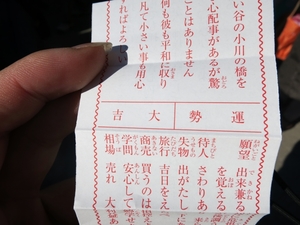 い谷の小川の橋を
心配事があるが驚
ことはありません
何も彼も平和に取り
凡て小さい事も用心
ればよろ
運勢
大吉
願望 出来兼る
を覚える
待人 さわりあ
失物 出がたし
旅行 吉日をえ
商売 買うのは
学問 安心して
相場 売れ 大